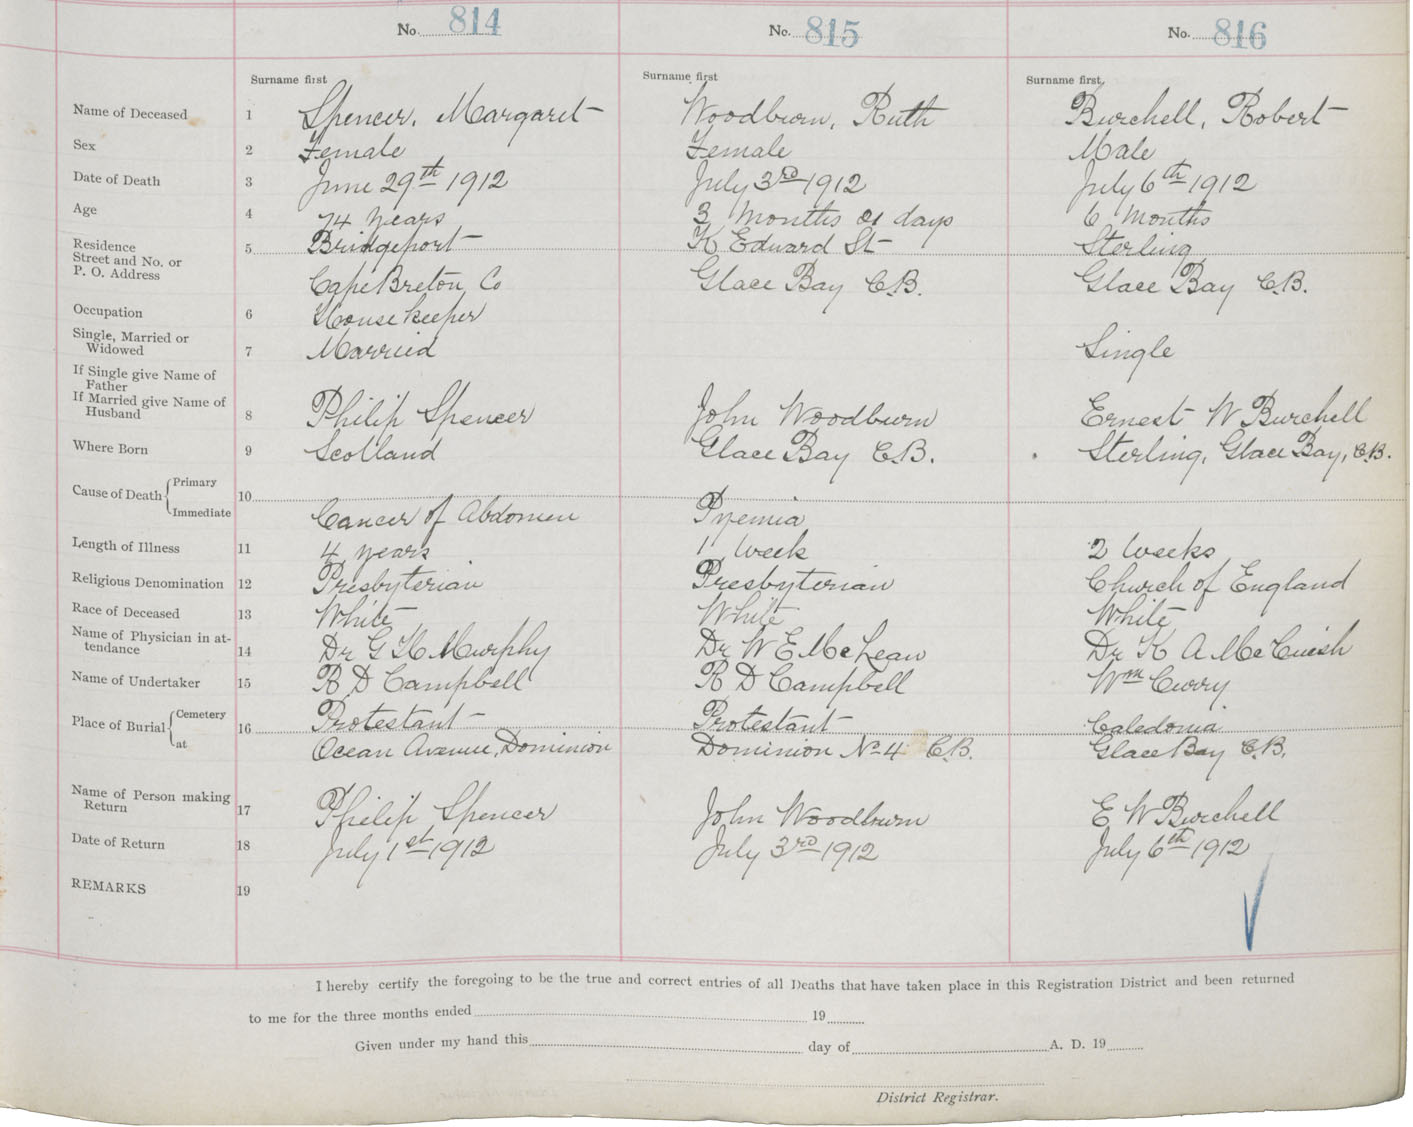 No. 814 No. 815 No. 816
Surname first Surname first Surname first
Name of Deceased 1 Spencer, Margaret Woodburn, Ruth Burchell, Robert
Sex 2 Female Female Male
Date of Death 3 June 29th 1912 July 3rd 1912 July 6th 1912
Age 4 74 years 3 Months 21 days 6 Months
Residence 5 Bridgeport K Edward St Sterling
Street and No. or
P. O. Address Cape Breton Co Glace Bay C.B. Glace Bay C.B.
Occupation 6 House keeper
Single, Married or
Widowed 7 Married Single
If Single give Name of
Father
If Married give Name of
Husband 8 Philip Spencer John Woodburn Ernest W Burchell
Where Born 9 Scotland Glace Bay C.B. Sterling, Glace Bay, C.B.
Cause of Death Primary 10
Immediate Cancer of Abdomen Pyemia
Length of Illness 11 4 years 1 Week 2 Weeks
Religious Denomination 12 Presbyterian Presbyterian Church of England
Race of Deceased 13 White White White
Name of Physician in at-
tendance 14 Dr G H Murphy Dr W E McLean Dr K A McCuish
Name of Undertaker 15 R D Campbell R D Campbell Wm Curry
Place of Burial Cemetery 16 Protestant Protestant Caledonia
at Ocean Avenue, Dominion Dominion No 4 C.B. Glace Bay C.B.
Name of Person making
Return 17 Philip Spencer John Woodburn E W Burchell
Date of Return 18 July 1st 1912 July 3rd 1912 July 6th 1912
REMARKS 19
I hereby certify the foregoing to be the true and correct entries of all Deaths that have taken place in this Registration District and been returned
to me for the three months ended 19
Given under my hand this day of A. D. 19
District Registrar.